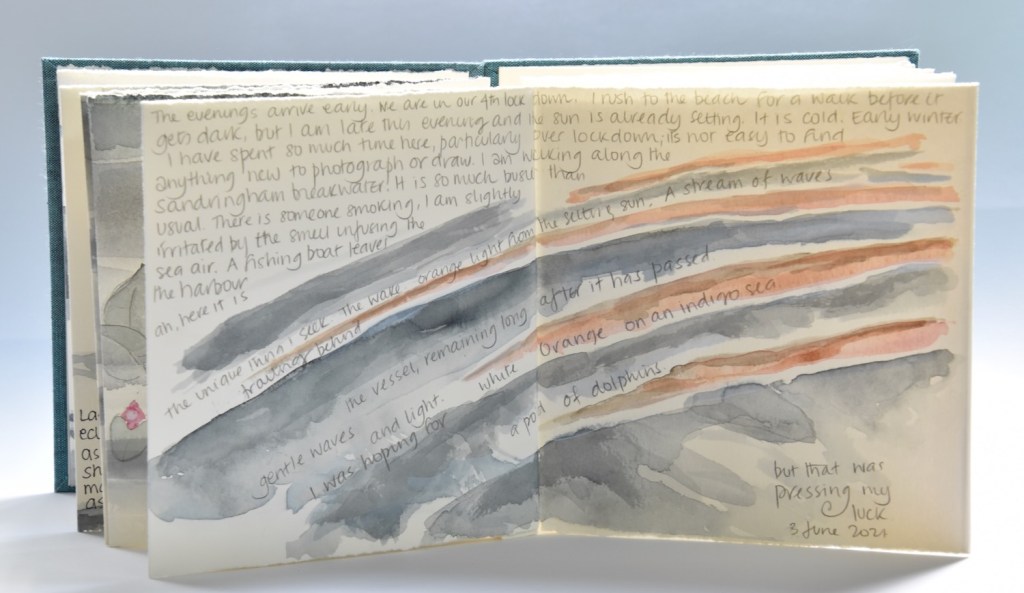 The evenings arrive early. We are in our 4th lock down. I rush to the beach for a walk before it
gets dark, but I am late this evening and the sun is already setting. It is cold. Early winter
I have spent so much time here, particularly over lockdown; its not easy to find
anything new to photograph or draw. I am walking along the
Sandringham breakwater. It is so much busier than
usual. There is someone smoking, I am slightly
irritated by the smell infusing the
sea air. A fishing boat leaves
the harbour
ah, here it is
the unique thing I seek. The wake orange light from the setting sun. A stream of waves
trailing behind
the vessel, remaining long after it has passed
gentle waves and light. where orange on an indigo sea
I was hoping for a pod of dolphins.
but that was
pressing my
luck
3 June 2021
La
ecl
as
sh
mo
as